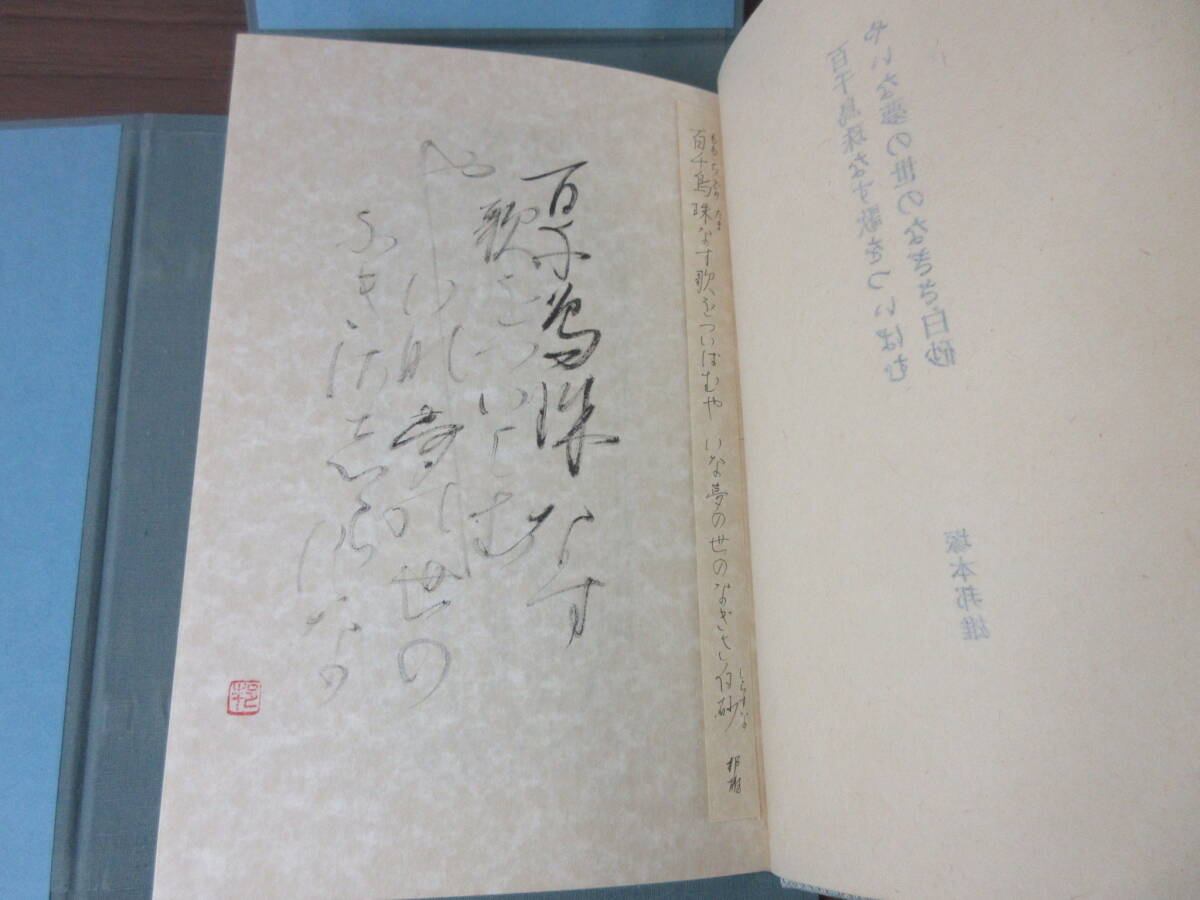 百千鳥珠なす歌をついばむ
やいな夢の世のなぎさ白砂
塚本邦雄
ももちどり たま
百千鳥珠なす歌をついばむや いな夢の世のなぎさ白砂 邦雄
しらすな
百千鳥珠なす
歌をついはむ
や
い那夢の世の
邦